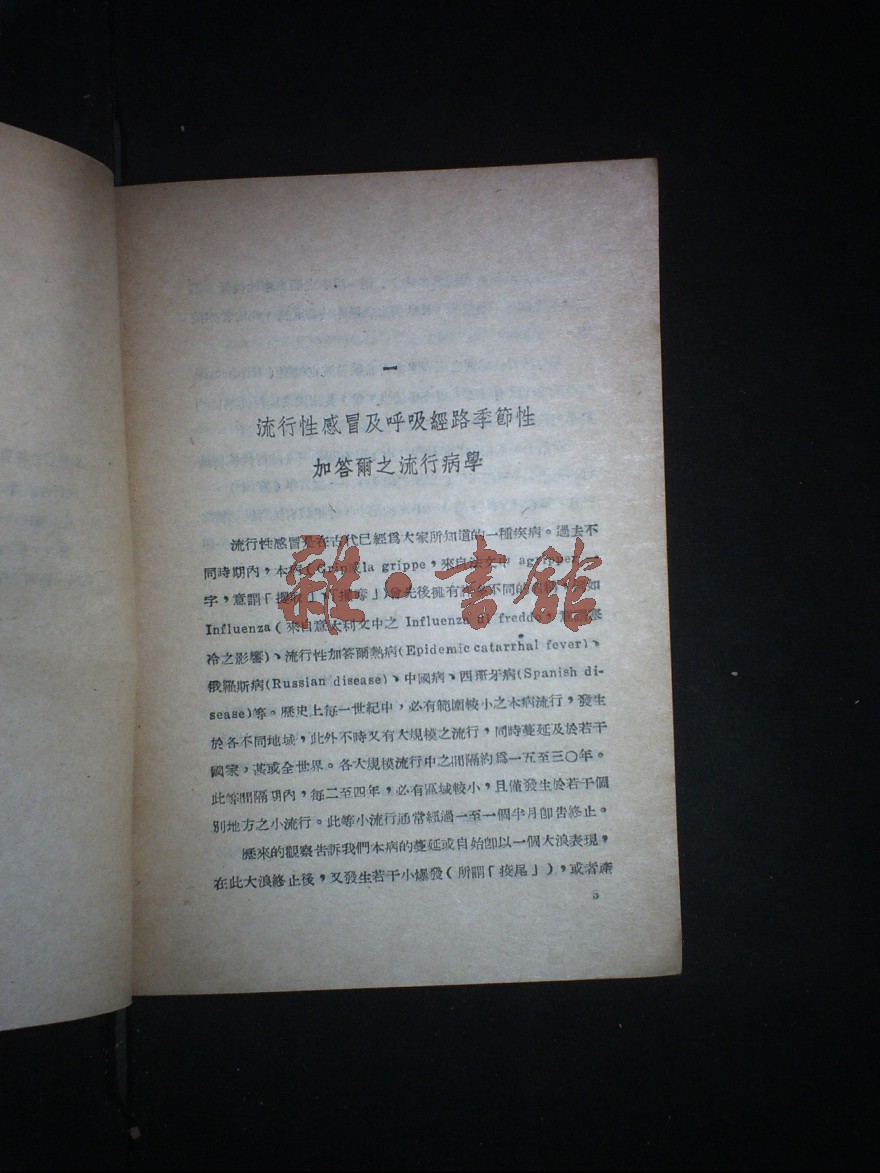 一
流行性感冒及呼吸經路季節性
加答爾之流行病學
流行性感冒是在古代已經爲大家所知道的一種疾病。過去不
同時期內,本病(Grip或la grippe,來自法文中 agripper
字,意謂「攫取」,「攫奪」)曾先後擁有許多不同的名稱,例如
Influenza(來自意大利文中之 Influenza di freddo,
冷之影響)、流行性加答爾熱病(Epidemic catarrhal fever)、
俄羅斯病(Russian disease)、中國病、西班牙病(Spanish di-
sease)等。歷史上每一世紀中,必有範圍較小之本病流行,發生
於各不同地域,此外不時又有大規模之流行,同時蔓延及於若干
國家,甚或全世界。各大規模流行中之間隔約爲一五至三〇年。
此等間隔期內,每二至四年,必有區域較小,且僅發生於若干個
別地方之小流行。此等小流行通常經過一至一個半月卽告終止。
歷來的觀察告訴我們本病的蔓延或自始卽以一個大浪表現,
在此大浪終止後,又發生若干小爆發(所謂「疫尾」),或者產
5
雜·書館